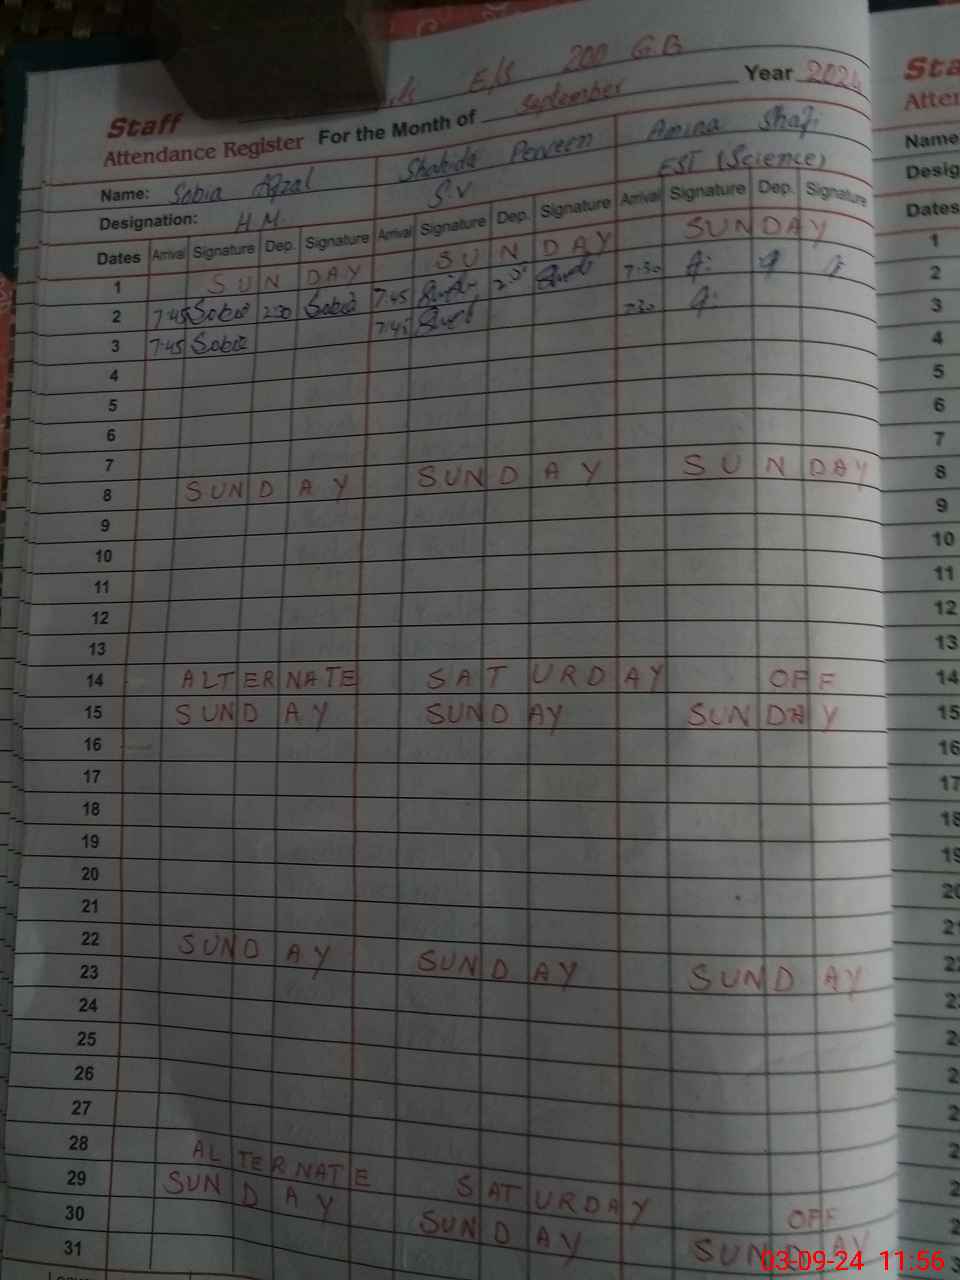 E/S 200 G.B
Staff
Attendance Register For the Month of September Year 2024
Name: Sobia Afzal Shahida Perveen Amina Shafi
Designation: H.M. S.V EST (Science)
Dates Arrival Signature Dep. Signature Arrival Signature Dep. Signature Arrival Signature Dep. Signature
1 SUNDAY SUNDAY SUNDAY
2 7:45 Sobia 2:30 Sobia 7:45 7:30
3 7:45 Sobia 7:45 7:30
4
5
6
7
8 SUNDAY SUNDAY SUNDAY
9
10
11
12
13
14 ALTERNATE SATURDAY OFF
15 SUNDAY SUNDAY SUNDAY
16
17
18
19
20
21
22 SUNDAY SUNDAY SUNDAY
23
24
25
26
27
28 ALTERNATE SATURDAY OFF
29 SUNDAY SUNDAY SUNDAY
30
31
Sta
Atte
Name
Desig
Dates
1
2
3
4
5
6
7
8
9
10
11
12
13
14
15
16
17
18
19
20
03-09-24 11:56